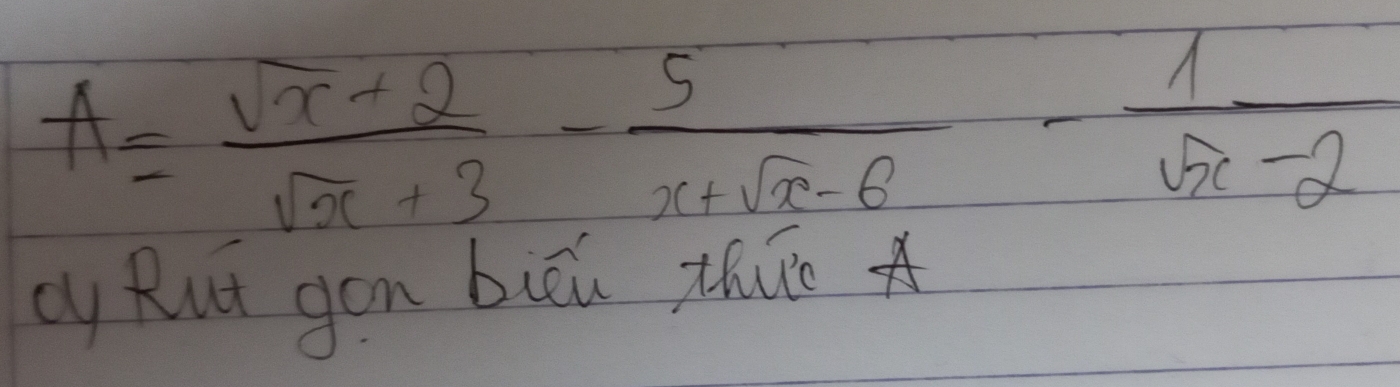 A = (√x + 2)/(√x + 3) - 5/(x + √x - 6) - 1/(√x - 2)
a) Rút gọn biểu thức A